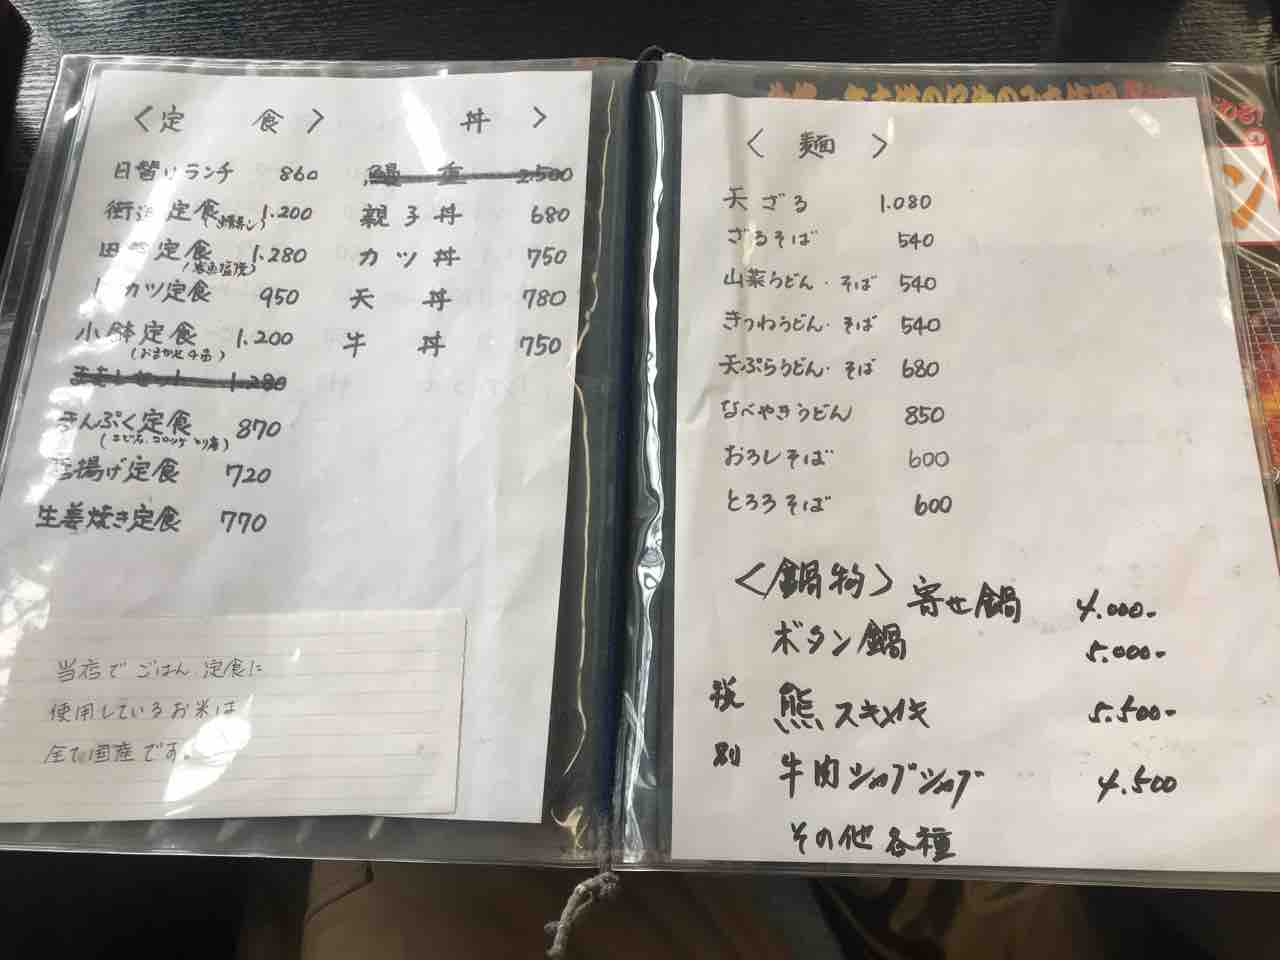 〈定 食〉
日替りランチ 860
街道定食 1.200
定食 1.280
カツ定食 950
小鉢定食 1.200
(おまかせ4品)
1.280
まんぷく定食 870
(エビフライ、コロッケ
揚げ定食 720
生姜焼き定食 770
丼 〉
鰻 重 2.500
親子丼 680
カツ丼 750
天 丼 780
牛 丼 750
当店でごはん定食に
使用しているお米は
全て国産です。
〈 麺 〉
天ざる 1.080
ざるそば 540
山菜うどん・そば 540
きつねうどん・そば 540
天ぷらうどん・そば 680
なべやきうどん 850
おろしそば 600
とろろそば 600
〈鍋物〉
寄せ鍋 4.000-
ボタン鍋 5.000-
熊スキヤキ 5.500-
牛肉シャブシャブ 4.500
その他各種
税別